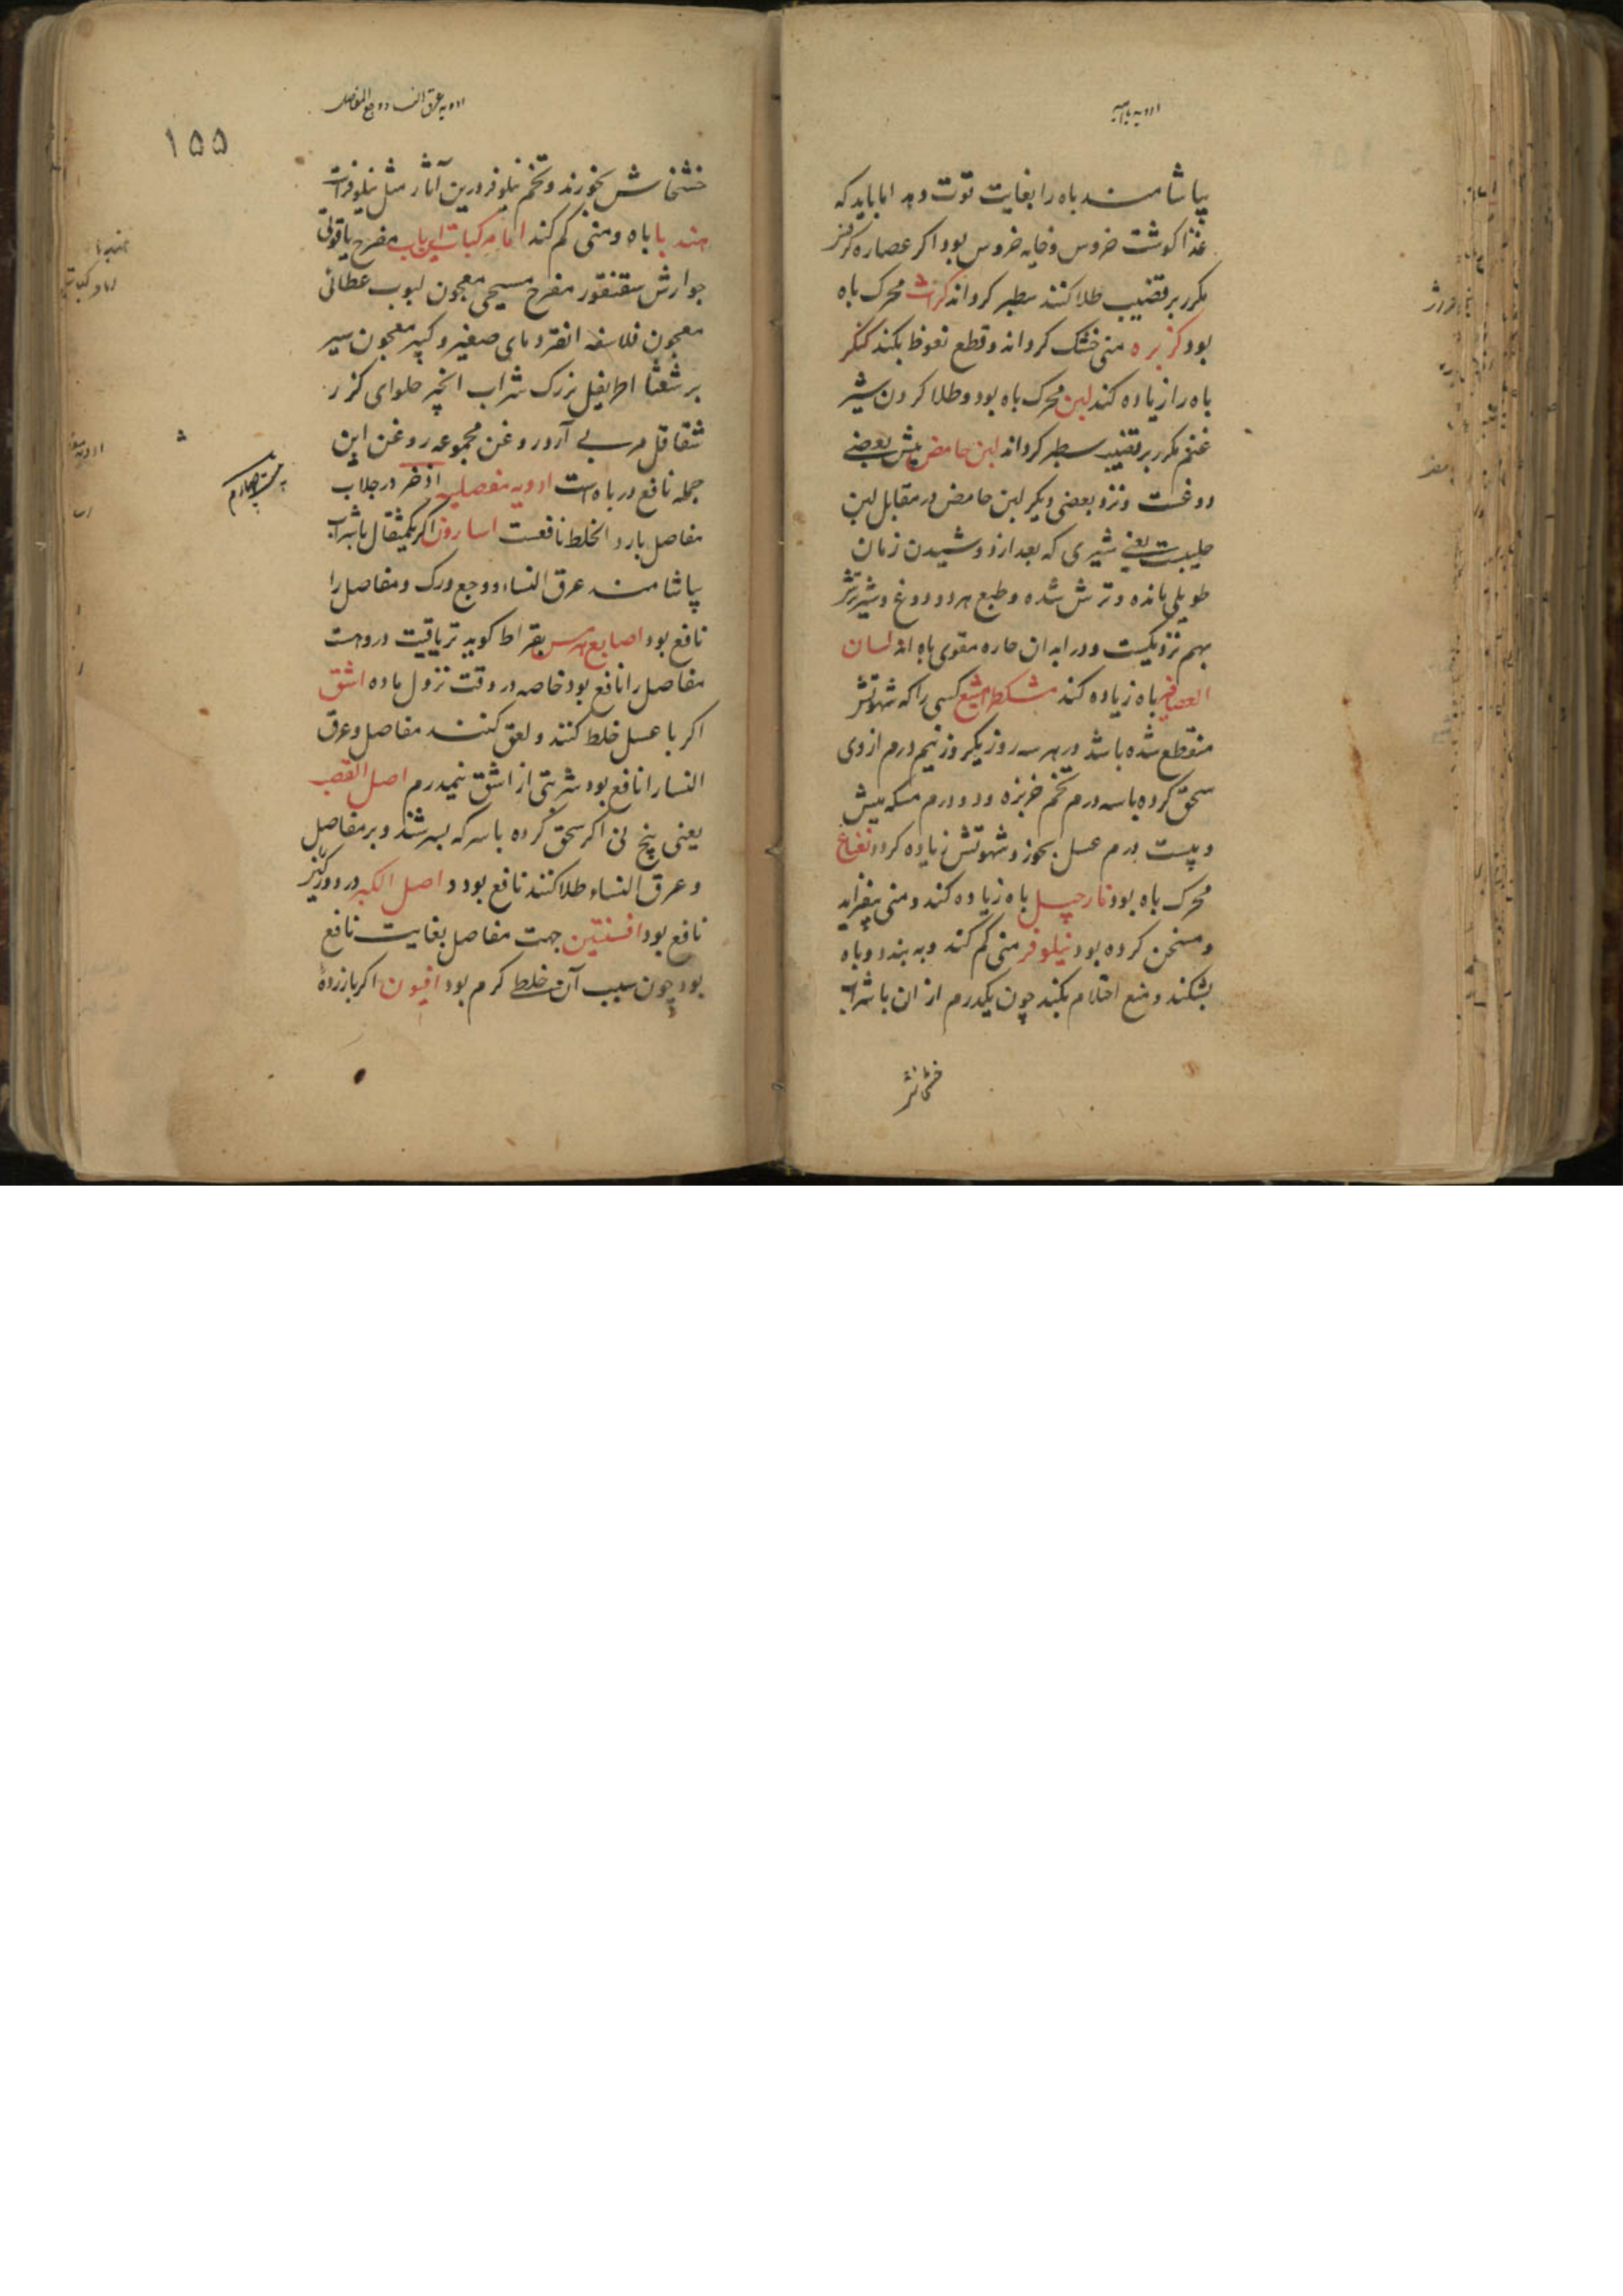 ادویه باهیه
بیاشامند باه را بغایت قوت دهد اما باید که
غذا کوشت خروس وخایه خروس بود اکر عصاره کرفس
مکرر بر قضیب طلا کنند سطبر کرداند کراث محرک باه
بود کزبره منی خشک کرداند وقطع نعوظ بکند کنکر
باه را زیاده کند لبن محرک باه بود وطلا کردن شیر
غنم مکرر بر قضیب سطبر کرداند لبن حامض پیش بعضی
دوغست ونزد بعضی دیکر لبن حامض در مقابل لبن
حلیبست یعنی شیری که بعد از دوشیدن زمان
طویلی مانده وترش شده وطبع هر دو دوغ وشیر ترش
بهم نزدیکست ودر ابدان حاره مقوی باه اند لسان
العصافیر باه زیاده کند مشکطرامشیع کسی را که شهوتش
منقطع شده باشد در هر سه روز یکروز نیم درم از وی
سحق کرده با سه درم تخم خربزه ودو درم مسکه میش
وبیست درم عسل بخورد شهوتش زیاده کردد نعناع
محرک باه بود نارجیل باه زیاده کند ومنی بیفزاید
ومسخن کرده بود نیلوفر منی کم کند وبه بندد وباه
بشکند ومنع احتلام بکند چون یکدرم از ان با شراب
خشخاش
ادویه عرق النسا ووجع المفاصل
۱۵۵
خشخاش بخورند وتخم نیلوفر درین آثار مثل نیلوفر است
هندبا باه ومنی کم کند اما مرکبات این باب مفرح یاقوتی
جوارش سقنقور مفرح مسیحی معجون لبوب عطائی
معجون فلاسفه انقردیای صغیر وکبیر معجون سیر
برشعثا اطریفل بزرک شراب انجیر حلوای کزر
شقاقل مربی آرد روغن مجموعه روغن این
جمله نافع در باه است ادویه مفصلیه اذخر در جلاب
مفاصل بارد الخلط نافعست اسارون اکر یکمثقال با شراب
بیاشامند عرق النساء ووجع ورک ومفاصل را
نافع بود اصابع هرمس بقراط کوید تریاقیت دروست
مفاصل را نافع بود خاصه در وقت نزول ماده اشق
اکر با عسل خلط کنند ولعق کنند مفاصل وعرق
النسا را نافع بود شربتی از اشق نیمدرم اصل القصب
یعنی بیخ نی اکر سحق کرده با سرکه بسرشند وبر مفاصل
وعرق النساء طلا کنند نافع بود و اصل الکبر در دورک نیز
نافع بود افسنتین جهت مفاصل بغایت نافع
بود چون سبب آن خلط کرم بود افیون اکر با زرده